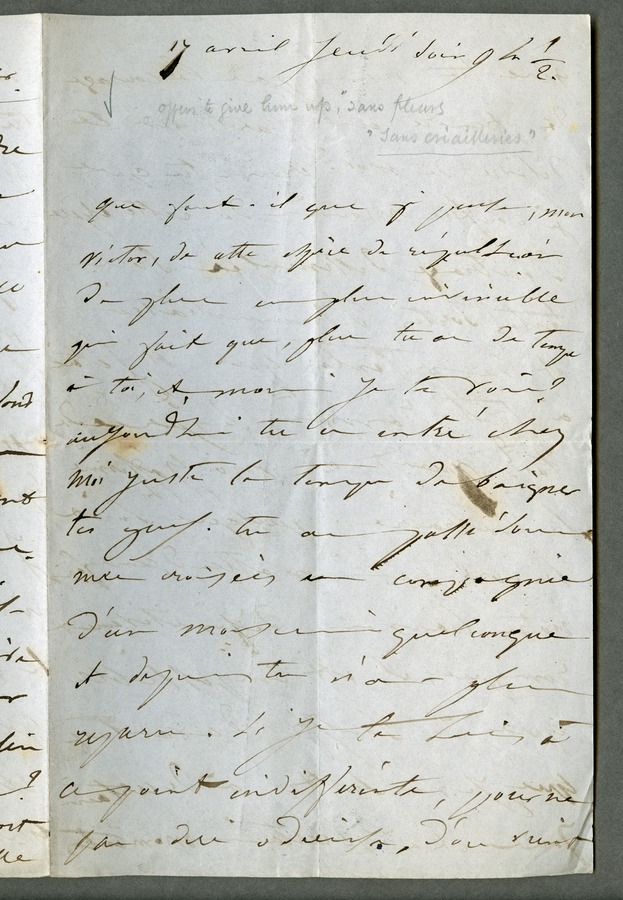 17 avril Jeudi soir 9 h ½.
offers to give him up, "sans pleurs
"sans criailleries"
que faut-il que je pense, mon
victor, de cette espèce de répulsion
de plus en plus invincible
qui fait que, plus tu as de temps
à toi, et moins je te vois ?
aujourd'hui tu es entré chez
moi juste le temps de baigner
tes yeux. tu as passé sous
mes croisées en compagnie
d'un monsieur quelconque
et depuis tu n'as plus
reparu. Si je te suis à
ce point indifférente, pour ne
pas dire odieuse, d'où vient